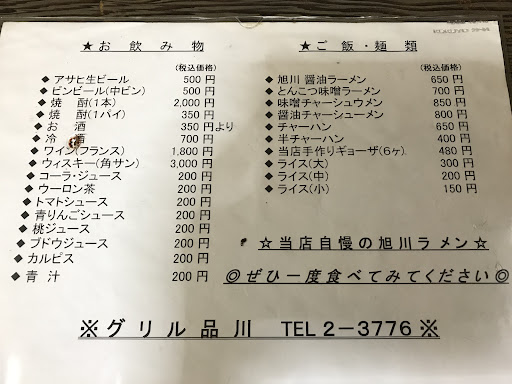 ★お飲み物
(税込価格)
◆ アサヒ生ビール 500 円
◆ ビンビール(中ビン) 500 円
◆ 焼 酎(1本) 2,000 円
◆ 焼 酎(1パイ) 350 円
◆ お 酒 350 円より
◆ 冷 700 円
◆ ワイン(フランス) 1,800 円
◆ ウィスキー(角サン) 3,000 円
◆ コーラ・ジュース 200 円
◆ ウーロン茶 200 円
◆ トマトシュース 200 円
◆ 青りんごシュース 200 円
◆ 桃ジュース 200 円
◆ ブドウジュース 200 円
◆ カルピス 200 円
◆ 青 汁 200 円
★ご飯・麺 類
(税込価格)
◆ 旭川 醤油ラーメン 650 円
◆ とんこつ味噌ラーメン 700 円
◆ 味噌チャーシュウメン 850 円
◆ 醤油チャーシューメン 800 円
◆ チャーハン 650 円
◆ 半チャーハン 400 円
◆ 当店手作りギョーザ(6ヶ) 480 円
◆ ライス(大) 300 円
◆ ライス(中) 200 円
◆ ライス(小) 150 円
☆当店自慢の旭川ラメン☆
◎ぜひ一度食べてみてください◎
※グリル品川 TEL2-3776※